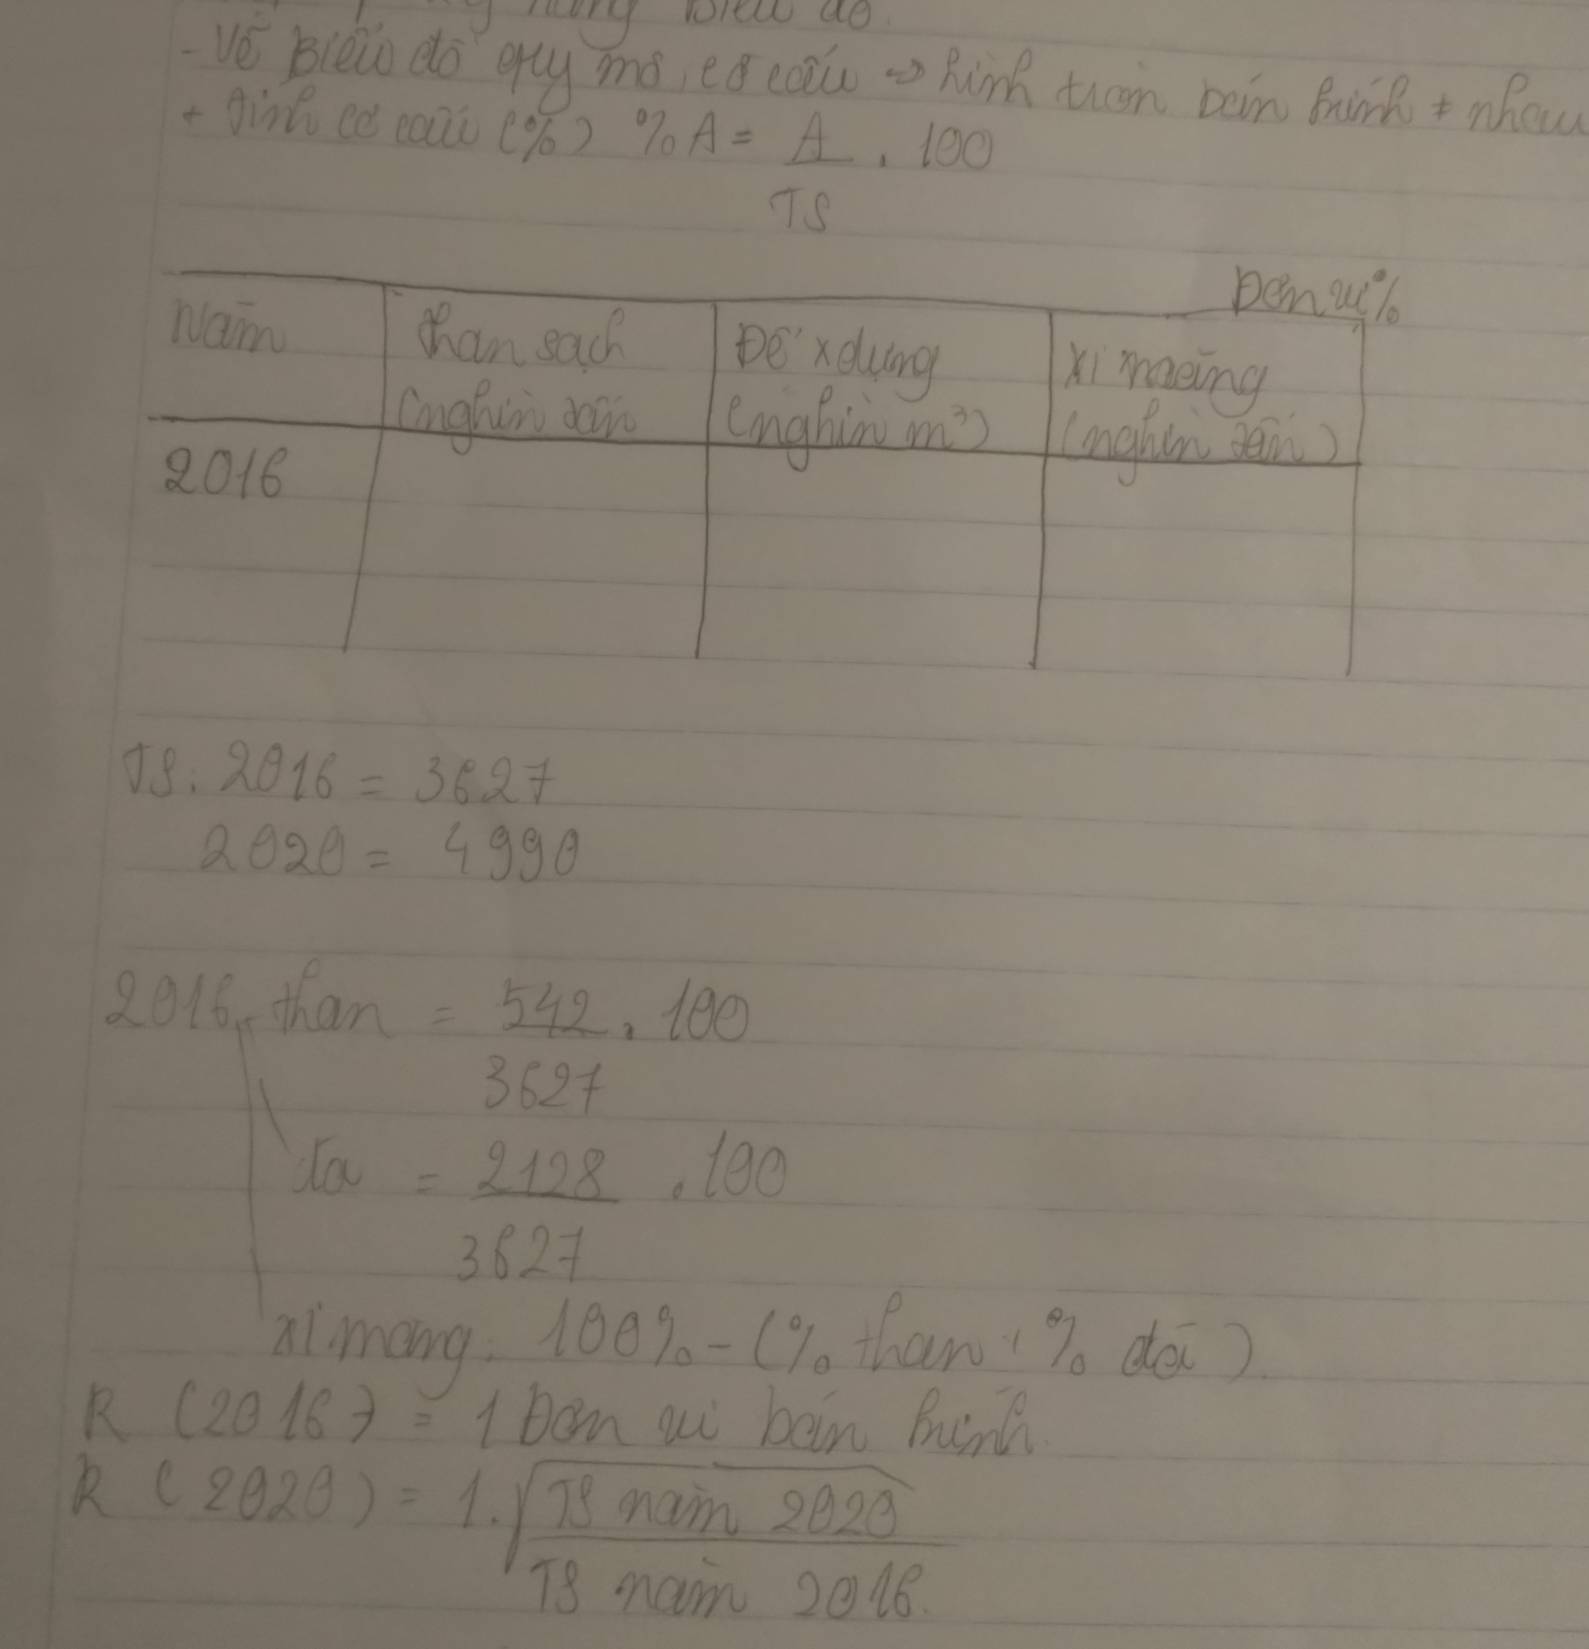 biểu đồ.
- Vẽ Biểu đồ quy mô, cơ cấu => hình tròn bán kính ≠ nhau
+ tính cơ cấu (%) %A = A/TS . 100
Đơn vị %
Năm | than sạch (nghìn tấn | Đá xdựng (nghìn m³) | xi măng (nghìn tấn)
2016
TS: 2016 = 3627
2020 = 4990
2016 than = 542/3627 . 100
đá = 2128/3627 . 100
xi măng: 100% - (% than + % đá)
R (2016) = 1 Đơn vị bán kính.
R (2020) = 1. √TS năm 2020/TS năm 2016.